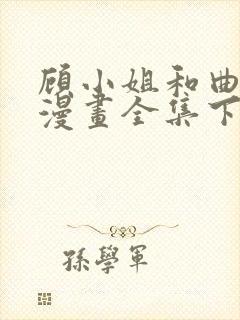 顾小姐和曲
漫畫全集下
孫學軍